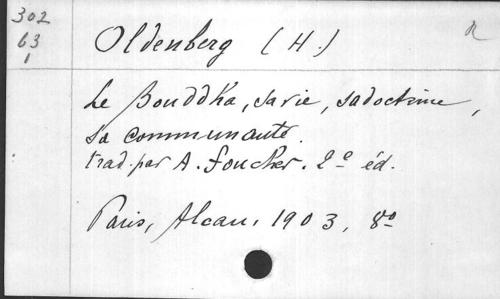 302
63
1
Oldenberg (H.)
R
Le Bouddha, sa vie, sa doctrine,
sa communauté.
trad. par A. Foucher. 2e éd.
Paris, Alcan, 1903, 8o